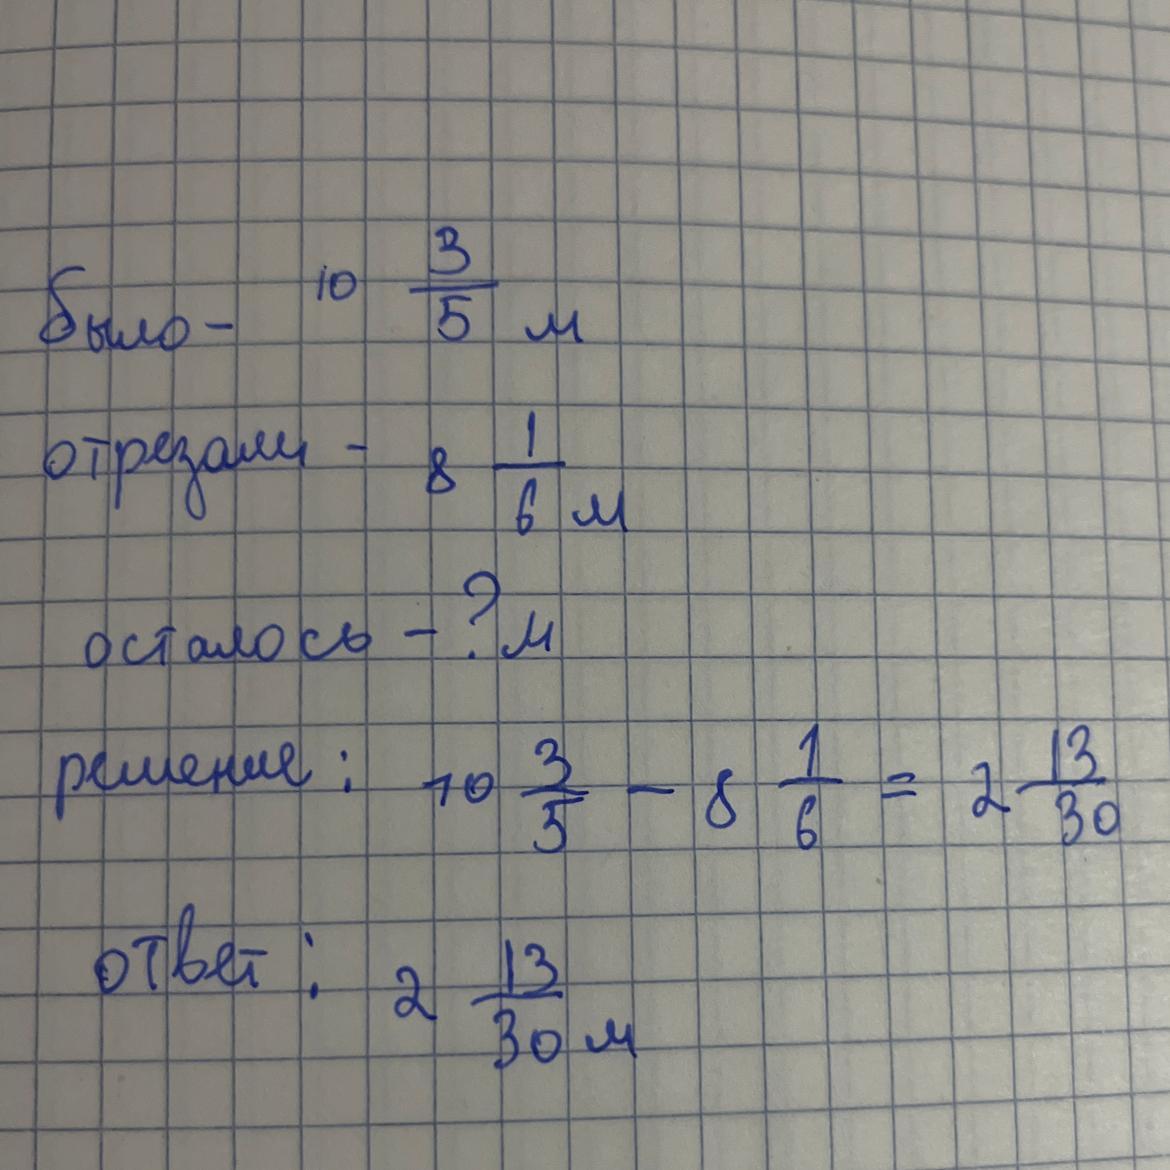 было - 10 3/5 м
отрезали - 8 1/6 м
осталось - ? м
решение: 10 3/5 - 8 1/6 = 2 13/30
ответ: 2 13/30 м